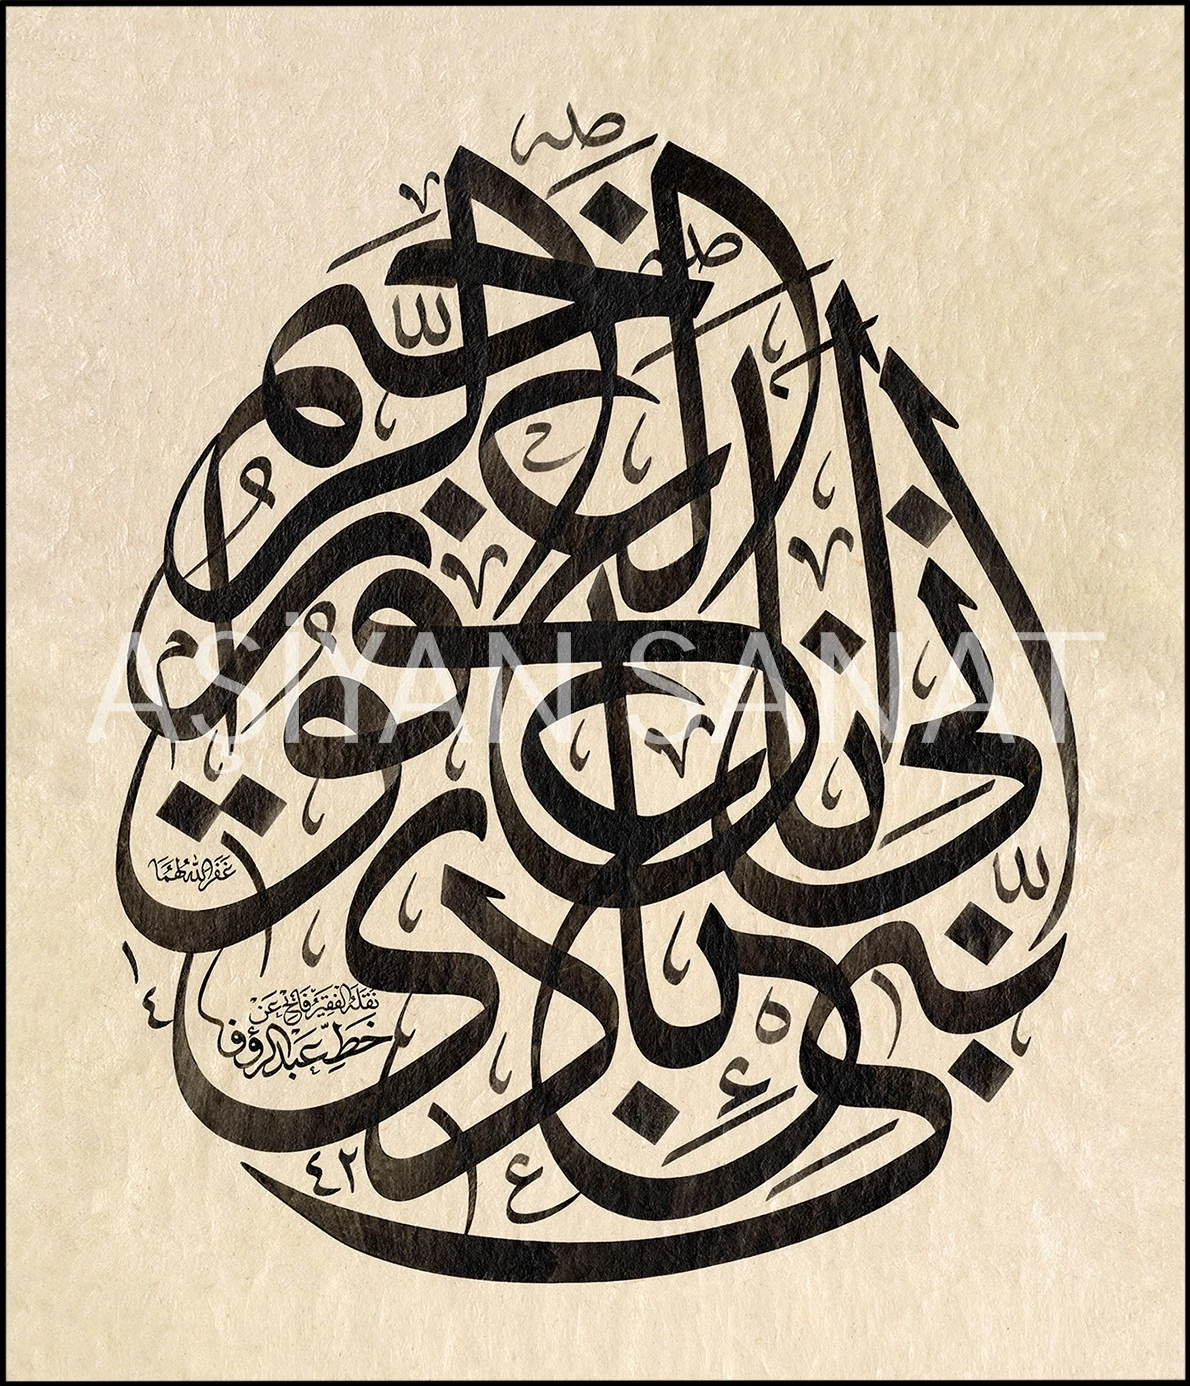 نَبِّئْ عِبَادِي أَنِّي أَنَا الْغَفُورُ الرَّحِيمُ
AŞİYAN SANAT
نقله الفقير فاتح عن
خط عبدالرؤف
غفر الله لهما
١٤٤٢